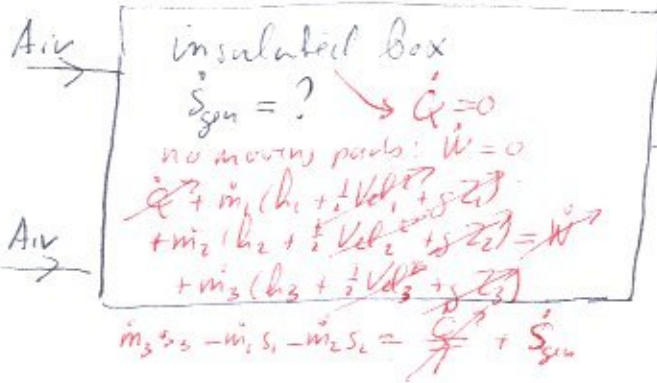 Air
insulated box
Ṡgen = ?
Q̇ = 0
no moving parts: Ẇ = 0
Q̇ + ṁ₁(h₁ + ½Vel₁² + gZ₁)
Air
+ṁ₂(h₂ + ½Vel₂² + gZ₂) = Ẇ
+ṁ₃(h₃ + ½Vel₃² + gZ₃)
ṁ₃s₃ − ṁ₁s₁ − ṁ₂s₂ = Q̇/T + Ṡgen